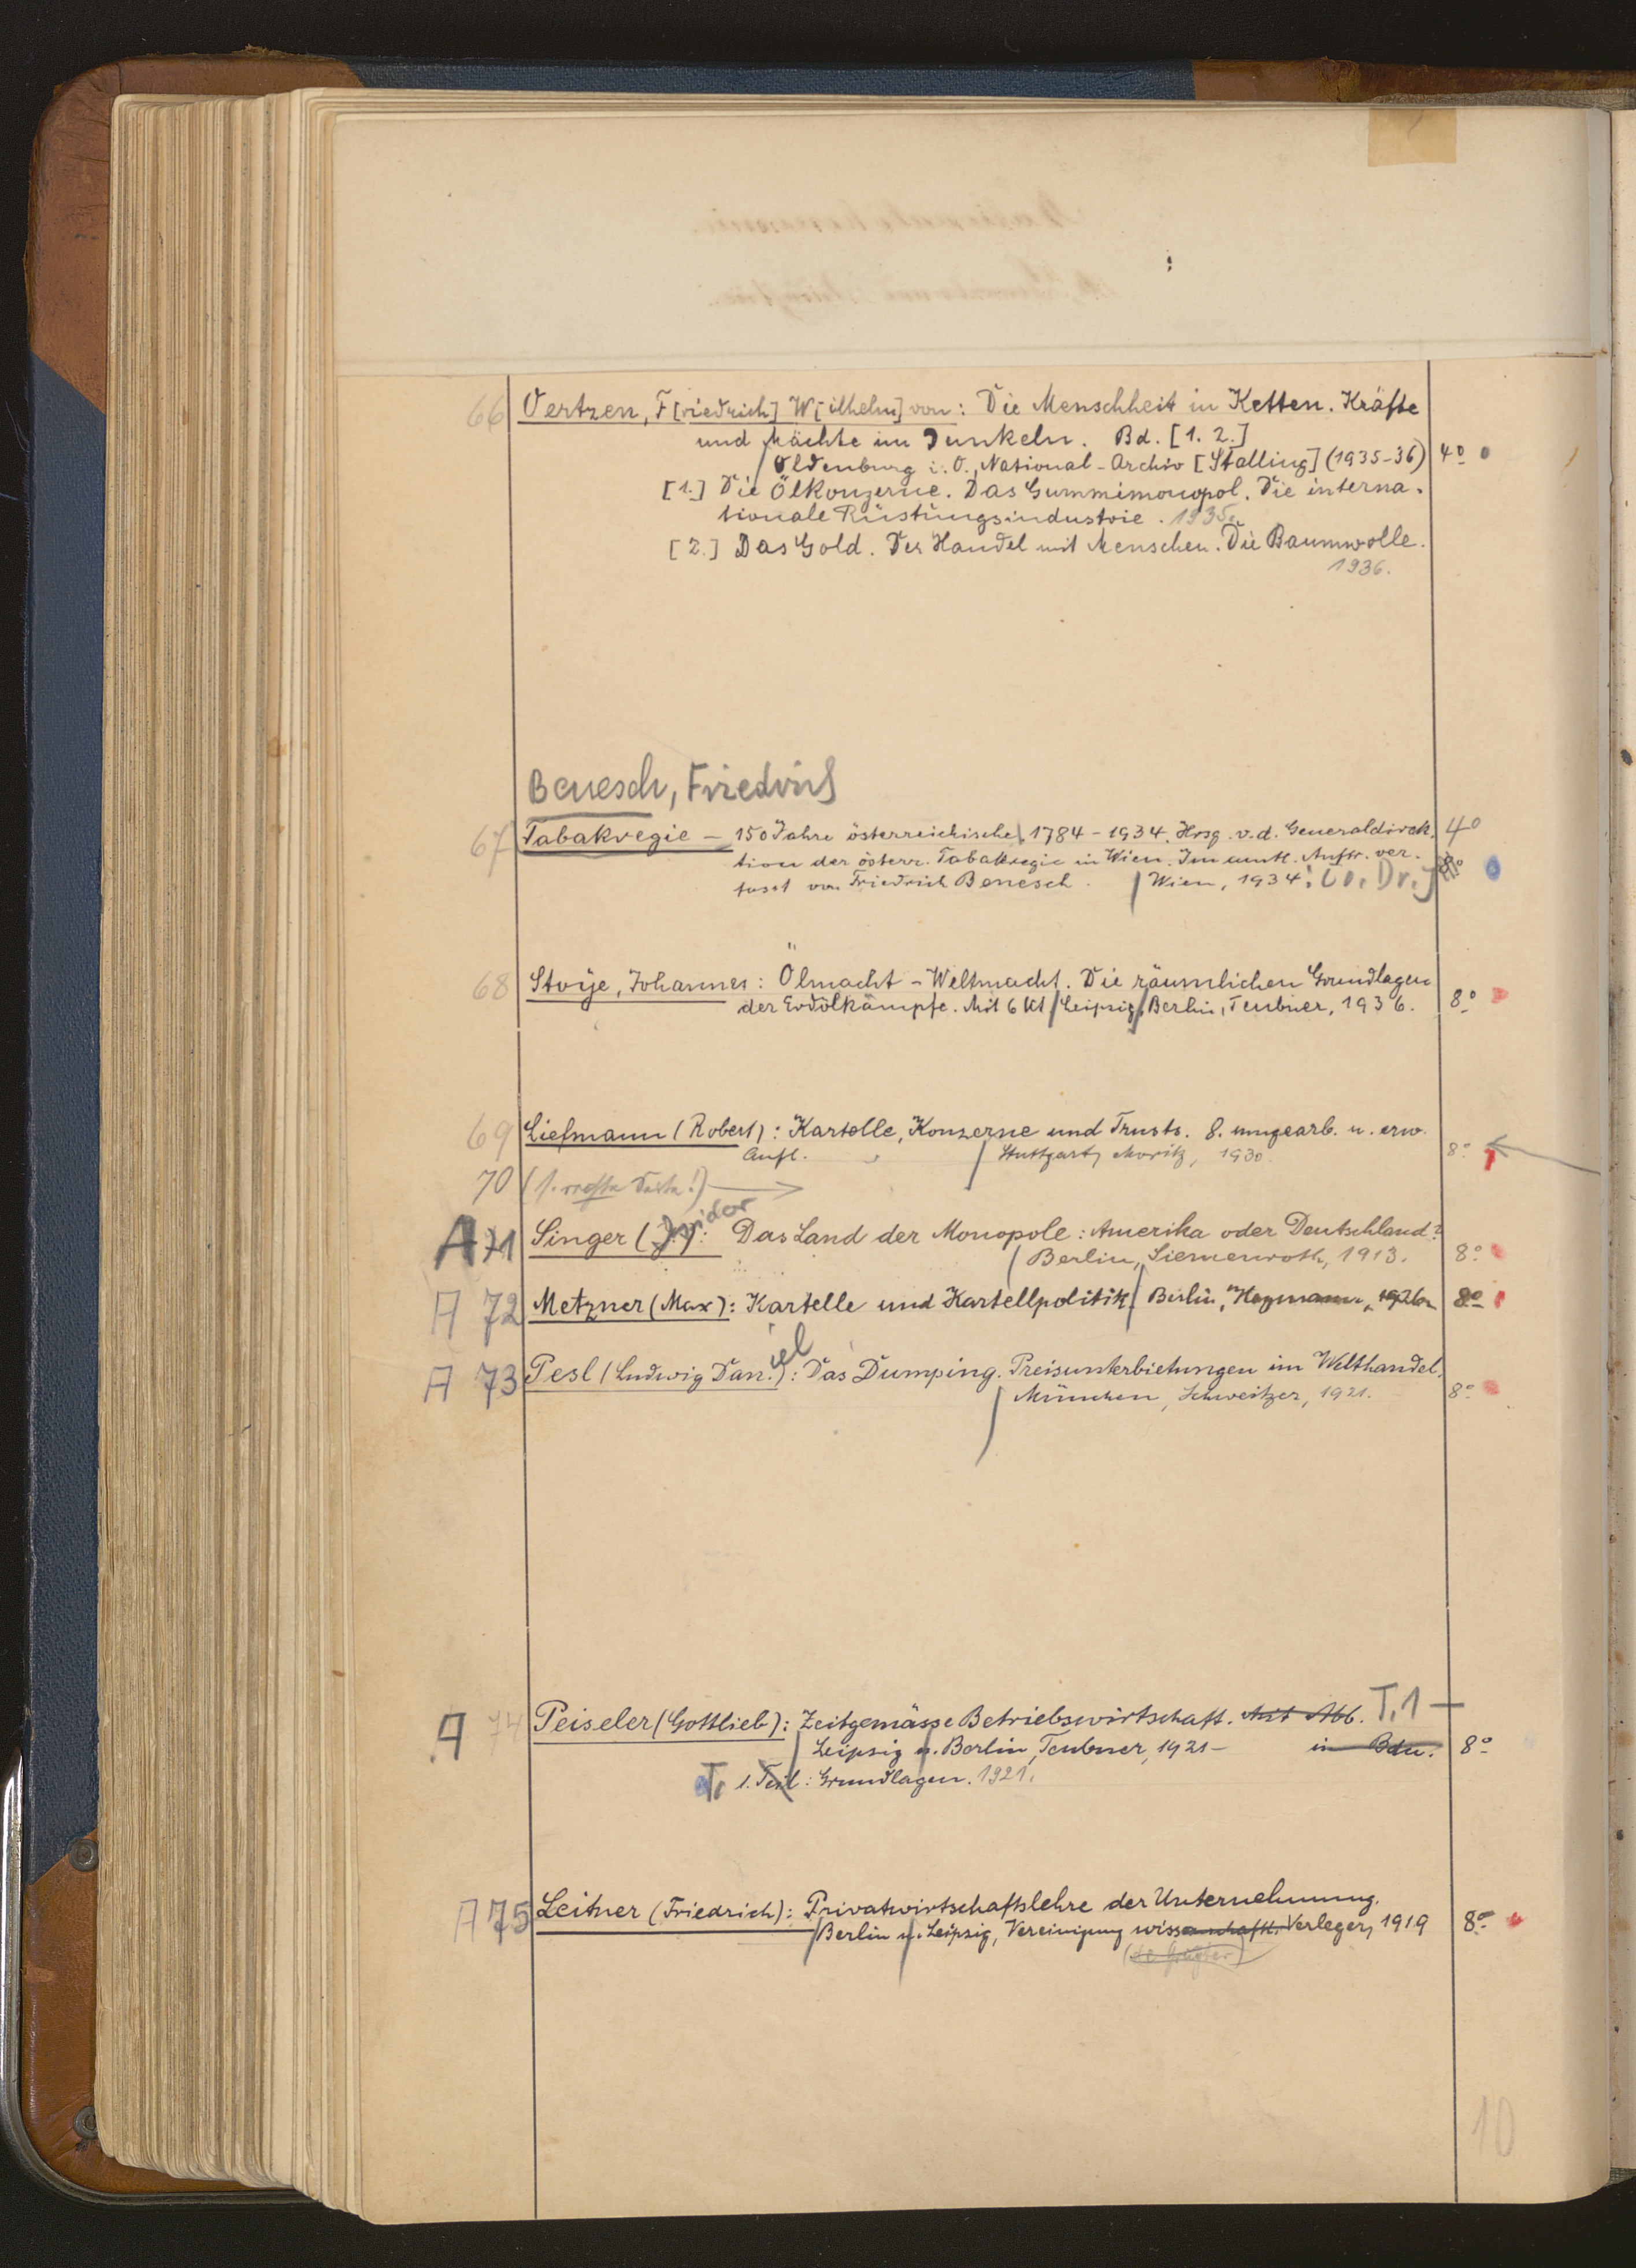 66 Oertzen, F[riedrich] W[ilhelm] von: Die Menschheit in Ketten. Kräfte
und Mächte im Dunkeln. Bd. [1. 2.]
Oldenburg i. O., National-Archiv [Stalling] (1935-36) 4º
[1.] Die Ölkonzerne. Das Gummimonopol. Die interna-
tionale Rüstungsindustrie. 1935.
[2.] Das Gold. Der Handel mit Menschen. Die Baumwolle.
1936.
Benesch, Friedrich
67 Tabakregie – 150 Jahre österreichische, 1784-1934. Hrsg. v. d. Generaldirek- 4º
tion der österr. Tabakregie in Wien. Im amtl. Auftr. ver-
fasst von Friedrich Benesch. Wien, 1934: [o. Dr.] 8º
68 Stoye, Johannes: Ölmacht - Weltmacht. Die räumlichen Grundlagen
der Erdölkämpfe. Mit 6 Kt Leipzig, Berlin, Teubner, 1936. 8º
69 Liefmann (Robert): Kartelle, Konzerne und Trusts. 8. umgearb. u. erw.
Aufl. Stuttgart, Moritz, 1930. 8º
70 (1. rechte Seite!)
A 71 Singer (J.): Isidor Das Land der Monopole: Amerika oder Deutschland?
Berlin, Siemenroth, 1913. 8º
A 72 Metzner (Max): Kartelle und Kartellpolitik. Berlin, Heymann, 1926. 8º
A 73 Pesl (Ludwig Dan.iel): Das Dumping. Preisunterbietungen im Welthandel.
München, Schweitzer, 1921. 8º
A 74 Peiseler (Gottlieb): Zeitgemässe Betriebswirtschaft. Mit Abb. T. 1 –
Leipzig u. Berlin, Teubner, 1921- in Bdn. 8º
T. 1. Teil: Grundlagen. 1921.
A 75 Leitner (Friedrich): Privatwirtschaftslehre der Unternehmung.
Berlin u. Leipzig, Vereinigung wissenschaftl. Verleger, 1919 8º
(de Gruyter)
10